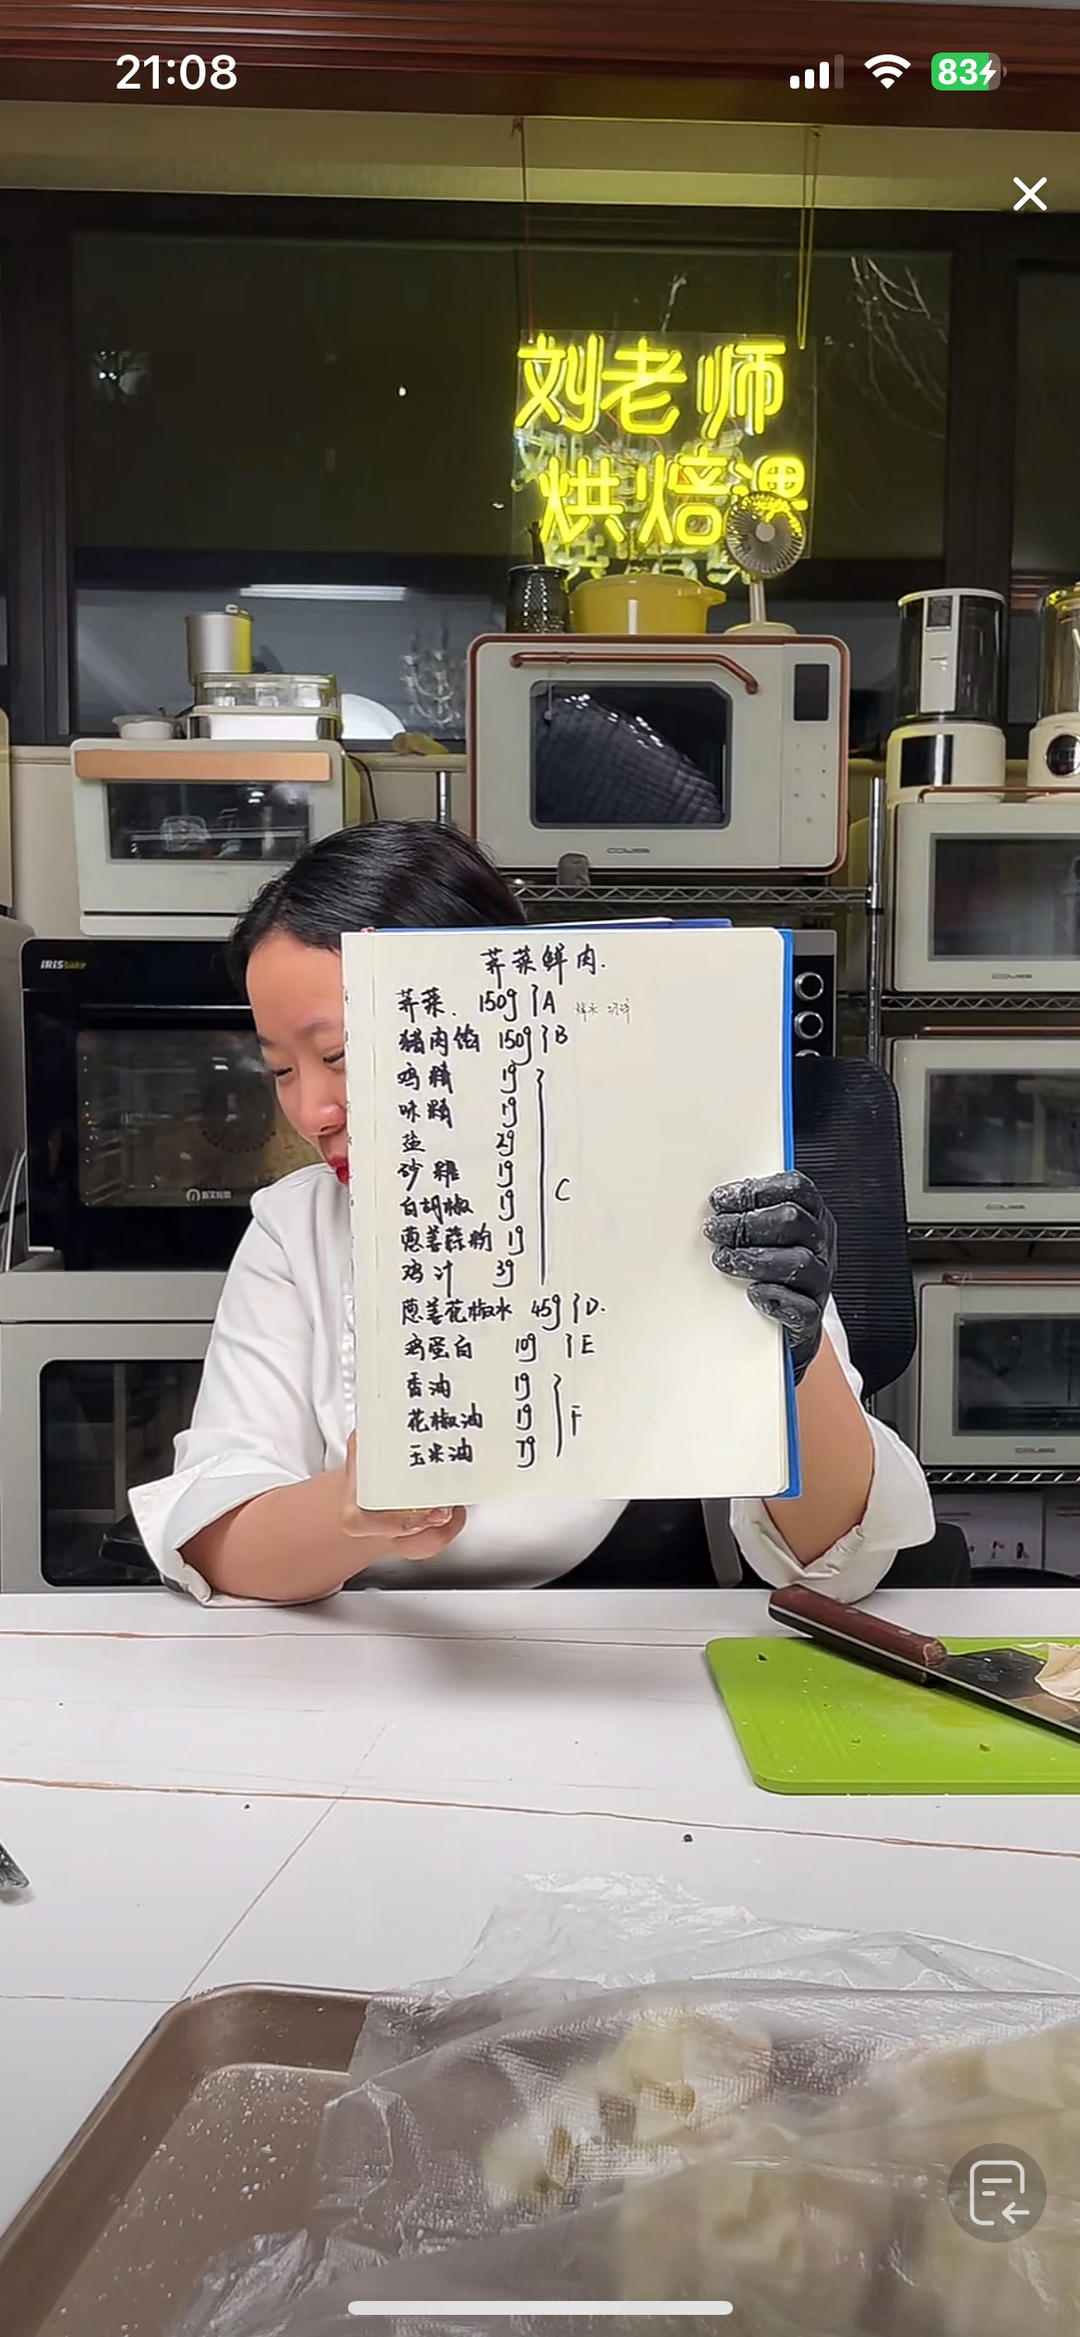 21:08
83
刘老师
烘焙课
IRISbake
荠菜鲜肉.
荠菜. 150g }A 焯水 切碎
猪肉馅 150g }B
鸡精 1g
味精 1g
盐 2g
砂糖 1g
白胡椒 1g
葱姜蒜粉 1g
鸡汁 3g
C
葱姜花椒水 45g }D.
鸡蛋白 10g }E
香油 1g
花椒油 1g
玉米油 7g
F